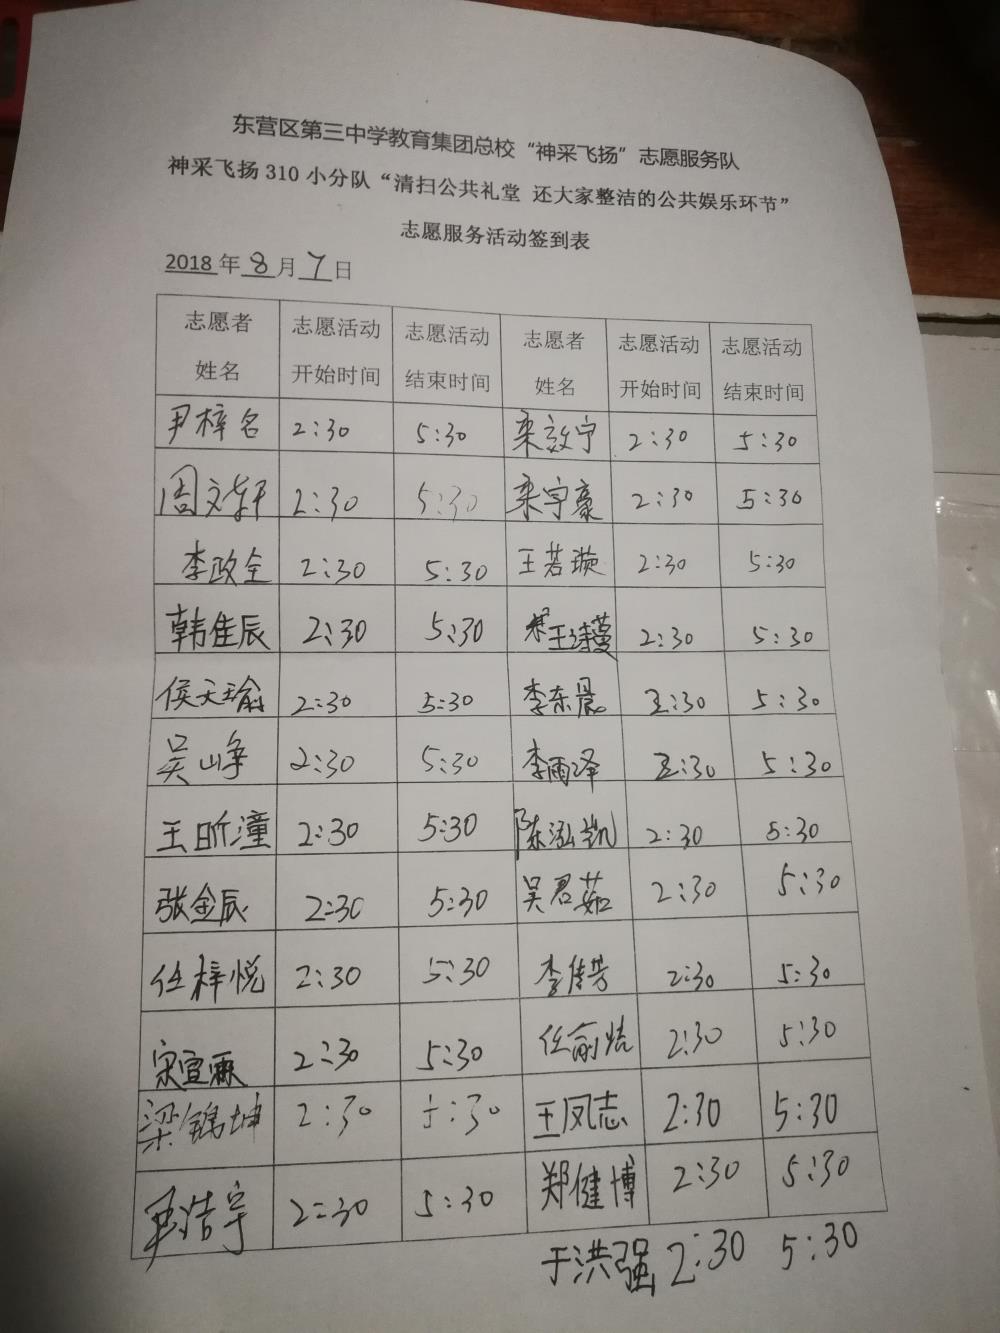 东营区第三中学教育集团总校“神采飞扬”志愿服务队
神采飞扬 310 小分队“清扫公共礼堂 还大家整洁的公共娱乐环节”
志愿服务活动签到表
2018 年 8 月 7 日
志愿者 志愿活动 志愿活动 志愿者 志愿活动 志愿活动
姓名 开始时间 结束时间 姓名 开始时间 结束时间
尹梓名 2:30 5:30 栾效宁 2:30 5:30
周文轩 2:30 5:30 栾宇豪 2:30 5:30
李政全 2:30 5:30 王若璇 2:30 5:30
韩佳辰 2:30 5:30 王诗蔓 2:30 5:30
侯天瑜 2:30 5:30 李东晨 2:30 5:30
吴山峥 2:30 5:30 李雨泽 2:30 5:30
王昕潼 2:30 5:30 陈泓凯 2:30 5:30
张金辰 2:30 5:30 吴君茹 2:30 5:30
任梓悦 2:30 5:30 李佳芳 2:30 5:30
宋宜霖 2:30 5:30 任俞 2:30 5:30
梁锦坤 2:30 5:30 王凤志 2:30 5:30
浩宇 2:30 5:30 郑健博 2:30 5:30
于洪强 2:30 5:30